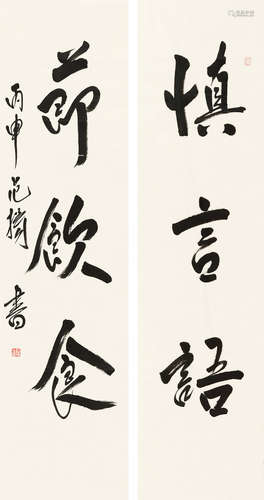 慎言語
節飲食
丙申范擴書